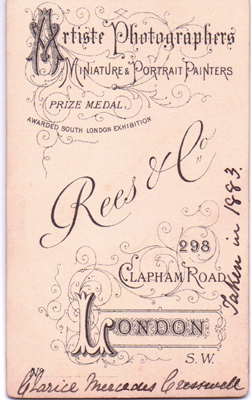 Artiste Photographers
Miniature & Portrait Painters
Prize Medal.
Awarded South London Exhibition
Rees & Co
298
Clapham Road
London
S.W.
Taken in 1883.
Clarice Mercedes Cresswell